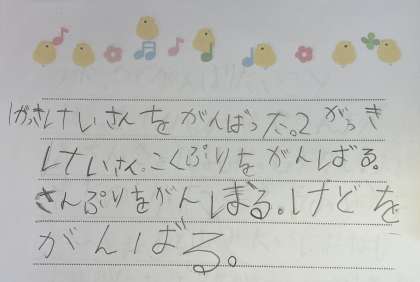 1がっきけいさんをがんばった。2がっき
けいさん。こくぷりをがんばる。
さんぷりをがんばる。けどを
がんばる。